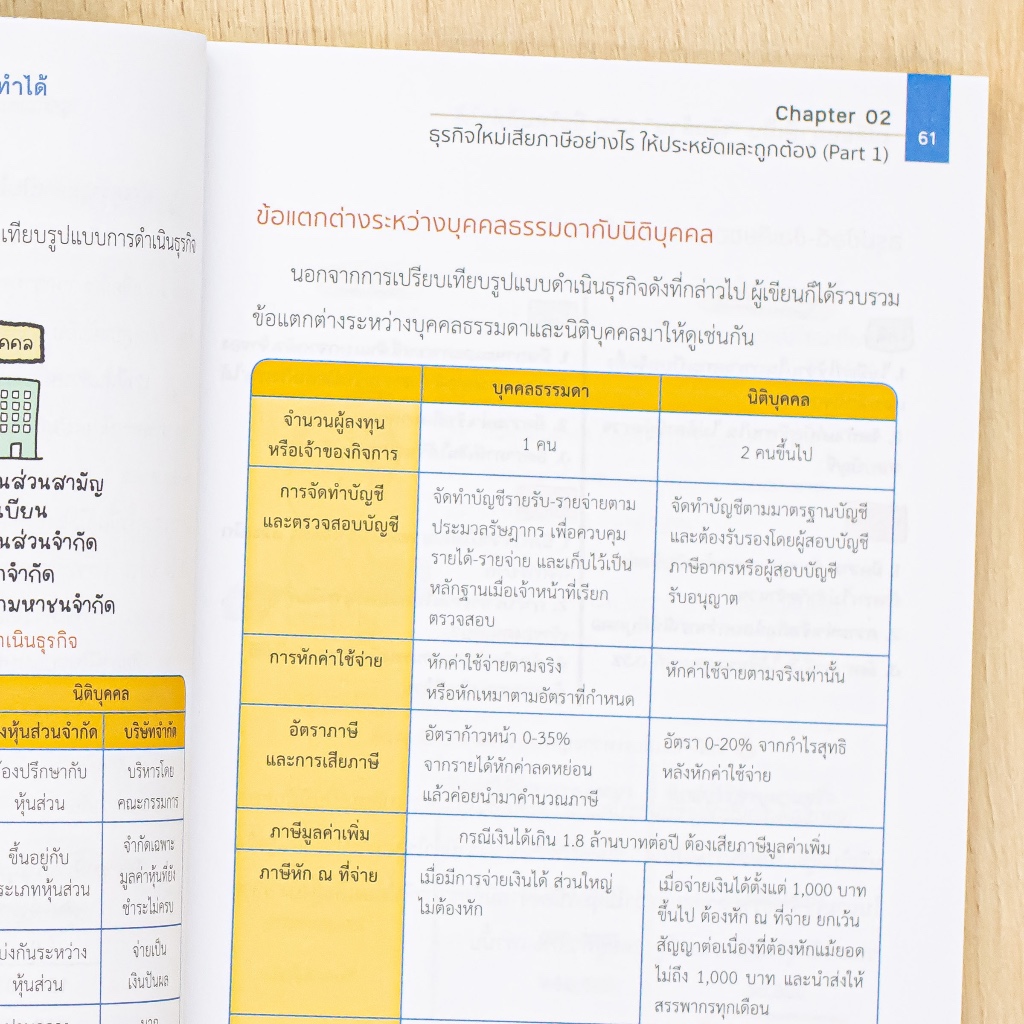 ทำได้
เทียบรูปแบบการดำเนินธุรกิจ
นส่วนสามัญ
นส่วนจำกัด
จำกัด
ามหาชนจำกัด
ำเนินธุรกิจ
นิติบุคคล
งหุ้นส่วนจำกัด บริษัทจำกัด
องปรึกษากับ
หุ้นส่วน
บริหารโดย
คณะกรรมการ
ขึ้นอยู่กับ
ระเภทหุ้นส่วน
จำกัดเฉพาะ
มูลค่าหุ้นที่ยัง
ชำระไม่ครบ
บ่งกันระหว่าง
หุ้นส่วน
จ่ายเป็น
เงินปันผล
Chapter 02
61
ธุรกิจใหม่เสียภาษีอย่างไร ให้ประหยัดและถูกต้อง (Part 1)
ข้อแตกต่างระหว่างบุคคลธรรมดากับนิติบุคคล
นอกจากการเปรียบเทียบรูปแบบดำเนินธุรกิจดังที่กล่าวไป ผู้เขียนก็ได้รวบรวม
ข้อแตกต่างระหว่างบุคคลธรรมดาและนิติบุคคลมาให้ดูเช่นกัน
บุคคลธรรมดา นิติบุคคล
จำนวนผู้ลงทุน
หรือเจ้าของกิจการ
1 คน
2 คนขึ้นไป
การจัดทำบัญชี
และตรวจสอบบัญชี
จัดทำบัญชีรายรับ-รายจ่ายตาม
ประมวลรัษฎากร เพื่อควบคุม
รายได้-รายจ่าย และเก็บไว้เป็น
หลักฐานเมื่อเจ้าหน้าที่เรียก
ตรวจสอบ
จัดทำบัญชีตามมาตรฐานบัญชี
และต้องรับรองโดยผู้สอบบัญชี
ภาษีอากรหรือผู้สอบบัญชี
รับอนุญาต
การหักค่าใช้จ่าย
หักค่าใช้จ่ายตามจริง
หรือหักเหมาตามอัตราที่กำหนด
หักค่าใช้จ่ายตามจริงเท่านั้น
อัตราภาษี
และการเสียภาษี
อัตราก้าวหน้า 0-35%
จากรายได้หักค่าลดหย่อน
แล้วค่อยนำมาคำนวณภาษี
อัตรา 0-20% จากกำไรสุทธิ
หลังหักค่าใช้จ่าย
ภาษีมูลค่าเพิ่ม
กรณีเงินได้เกิน 1.8 ล้านบาทต่อปี ต้องเสียภาษีมูลค่าเพิ่ม
ภาษีหัก ณ ที่จ่าย
เมื่อมีการจ่ายเงินได้ ส่วนใหญ่
ไม่ต้องหัก
เมื่อจ่ายเงินได้ตั้งแต่ 1,000 บาท
ขึ้นไป ต้องหัก ณ ที่จ่าย ยกเว้น
สัญญาต่อเนื่องที่ต้องหักแม้ยอด
ไม่ถึง 1,000 บาท และนำส่งให้
สรรพากรทุกเดือน